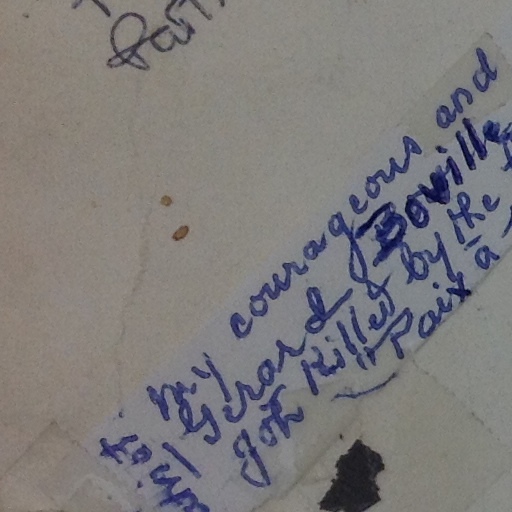 to my courageous and
Gerard Boville
got killed by the
"Paix à